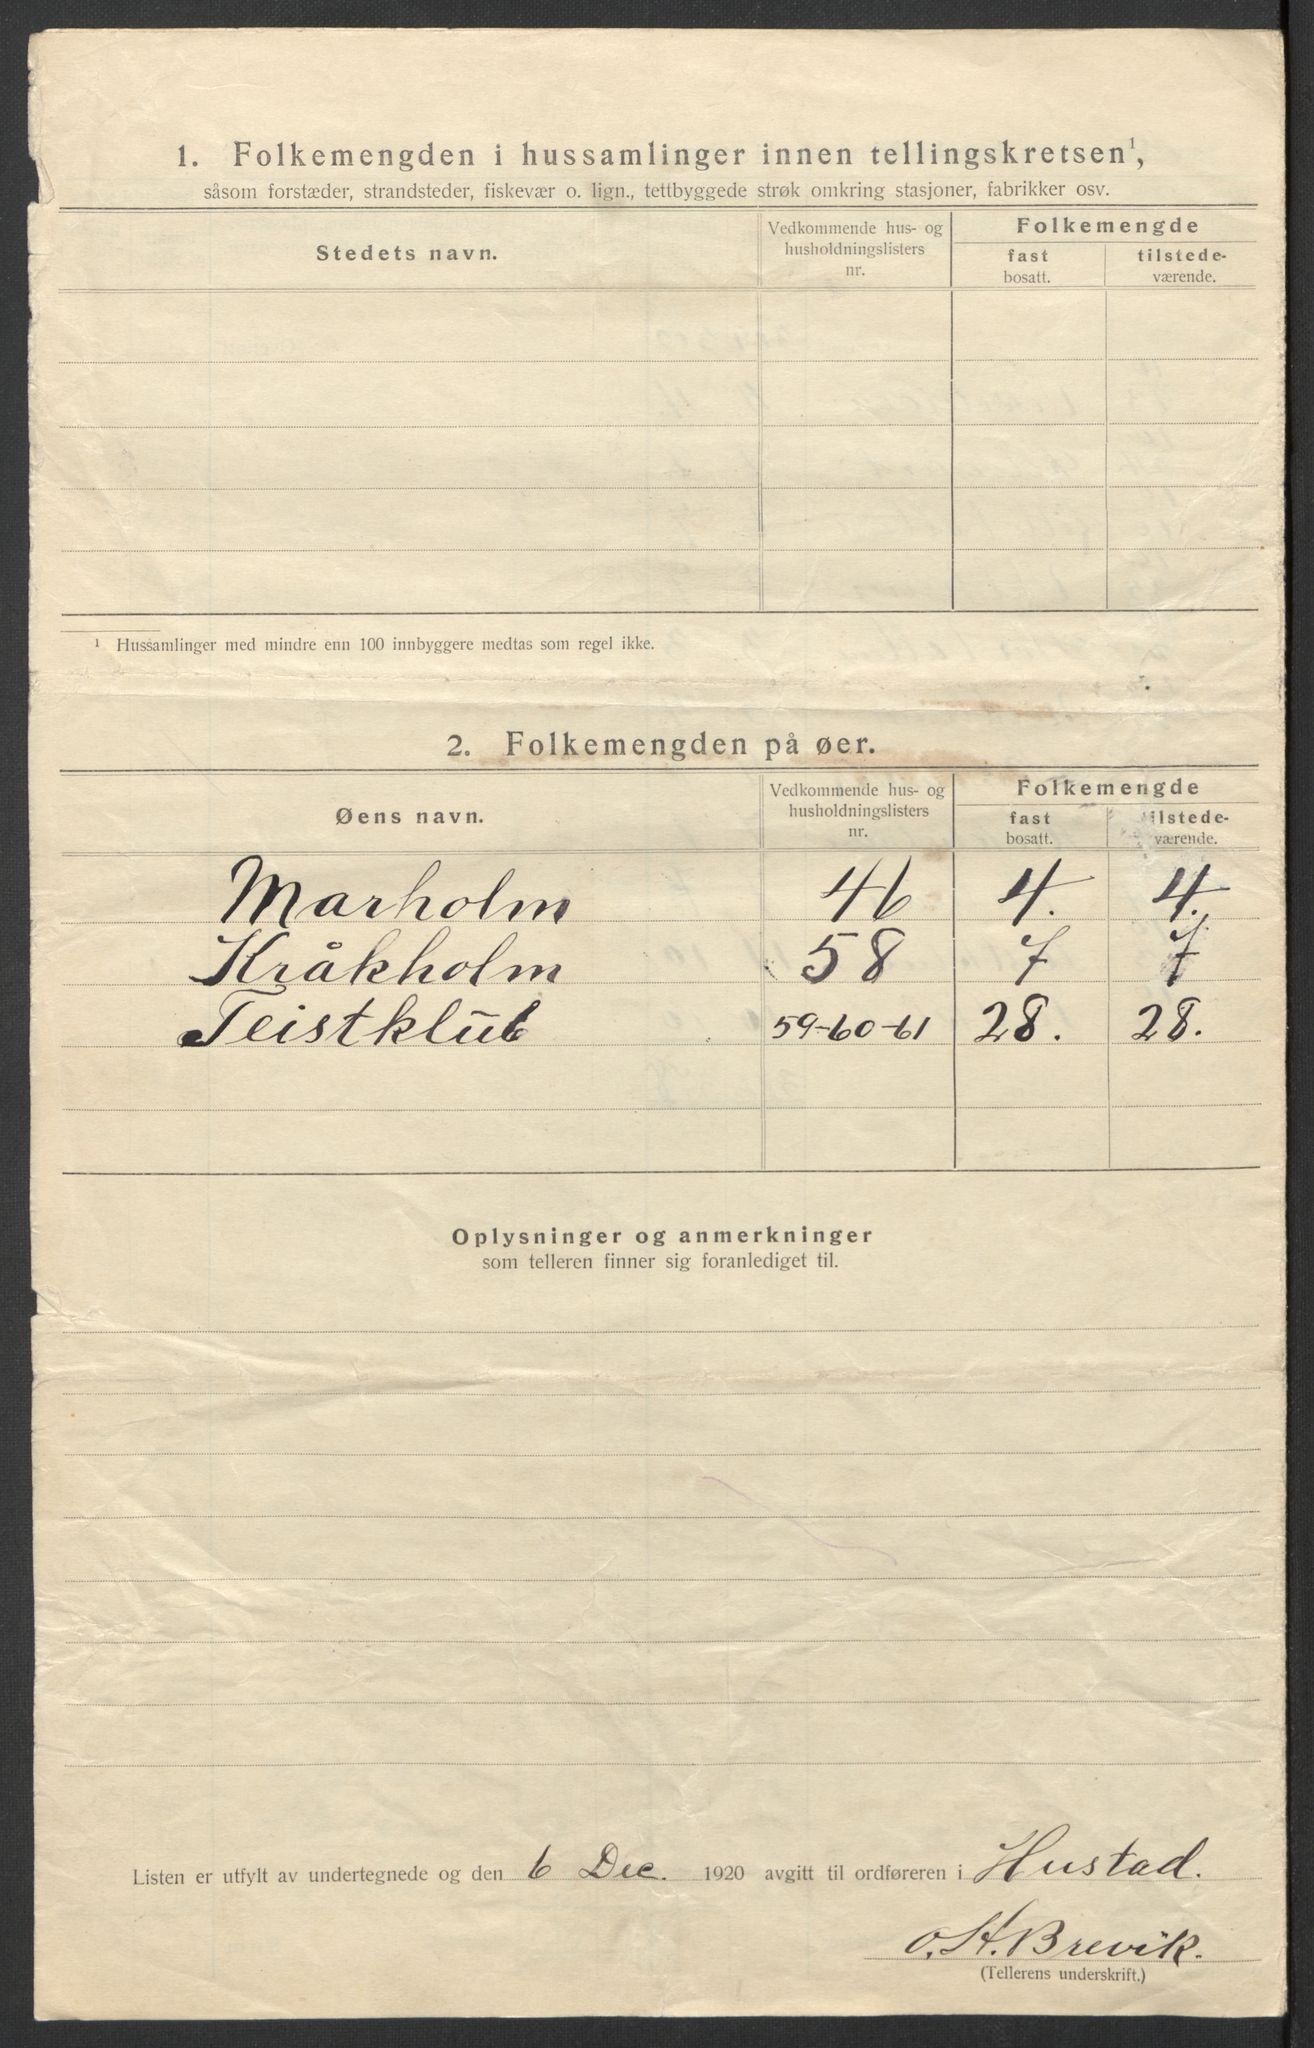 1. Folkemengden i hussamlinger innen tellingskretsen¹,
såsom forstæder, strandsteder, fiskevær o. lign., tettbyggede strøk omkring stasjoner, fabrikker osv.
Stedets navn. Vedkommende hus- og husholdningslisters nr. Folkemengde
fast bosatt. tilstede-værende.
¹ Hussamlinger med mindre enn 100 innbyggere medtas som regel ikke.
2. Folkemengden på øer.
Øens navn. Vedkommende hus- og husholdningslisters nr. Folkemengde
fast bosatt. tilstede-værende.
Marholm 46 4. 4.
Kråkholm 58 7 7
Teistklub 59-60-61 28. 28.
Oplysninger og anmerkninger
som telleren finner sig foranlediget til.
Listen er utfylt av undertegnede og den 6 Dec. 1920 avgitt til ordføreren i Hustad.
O. H. Brevik.
(Tellerens underskrift.)